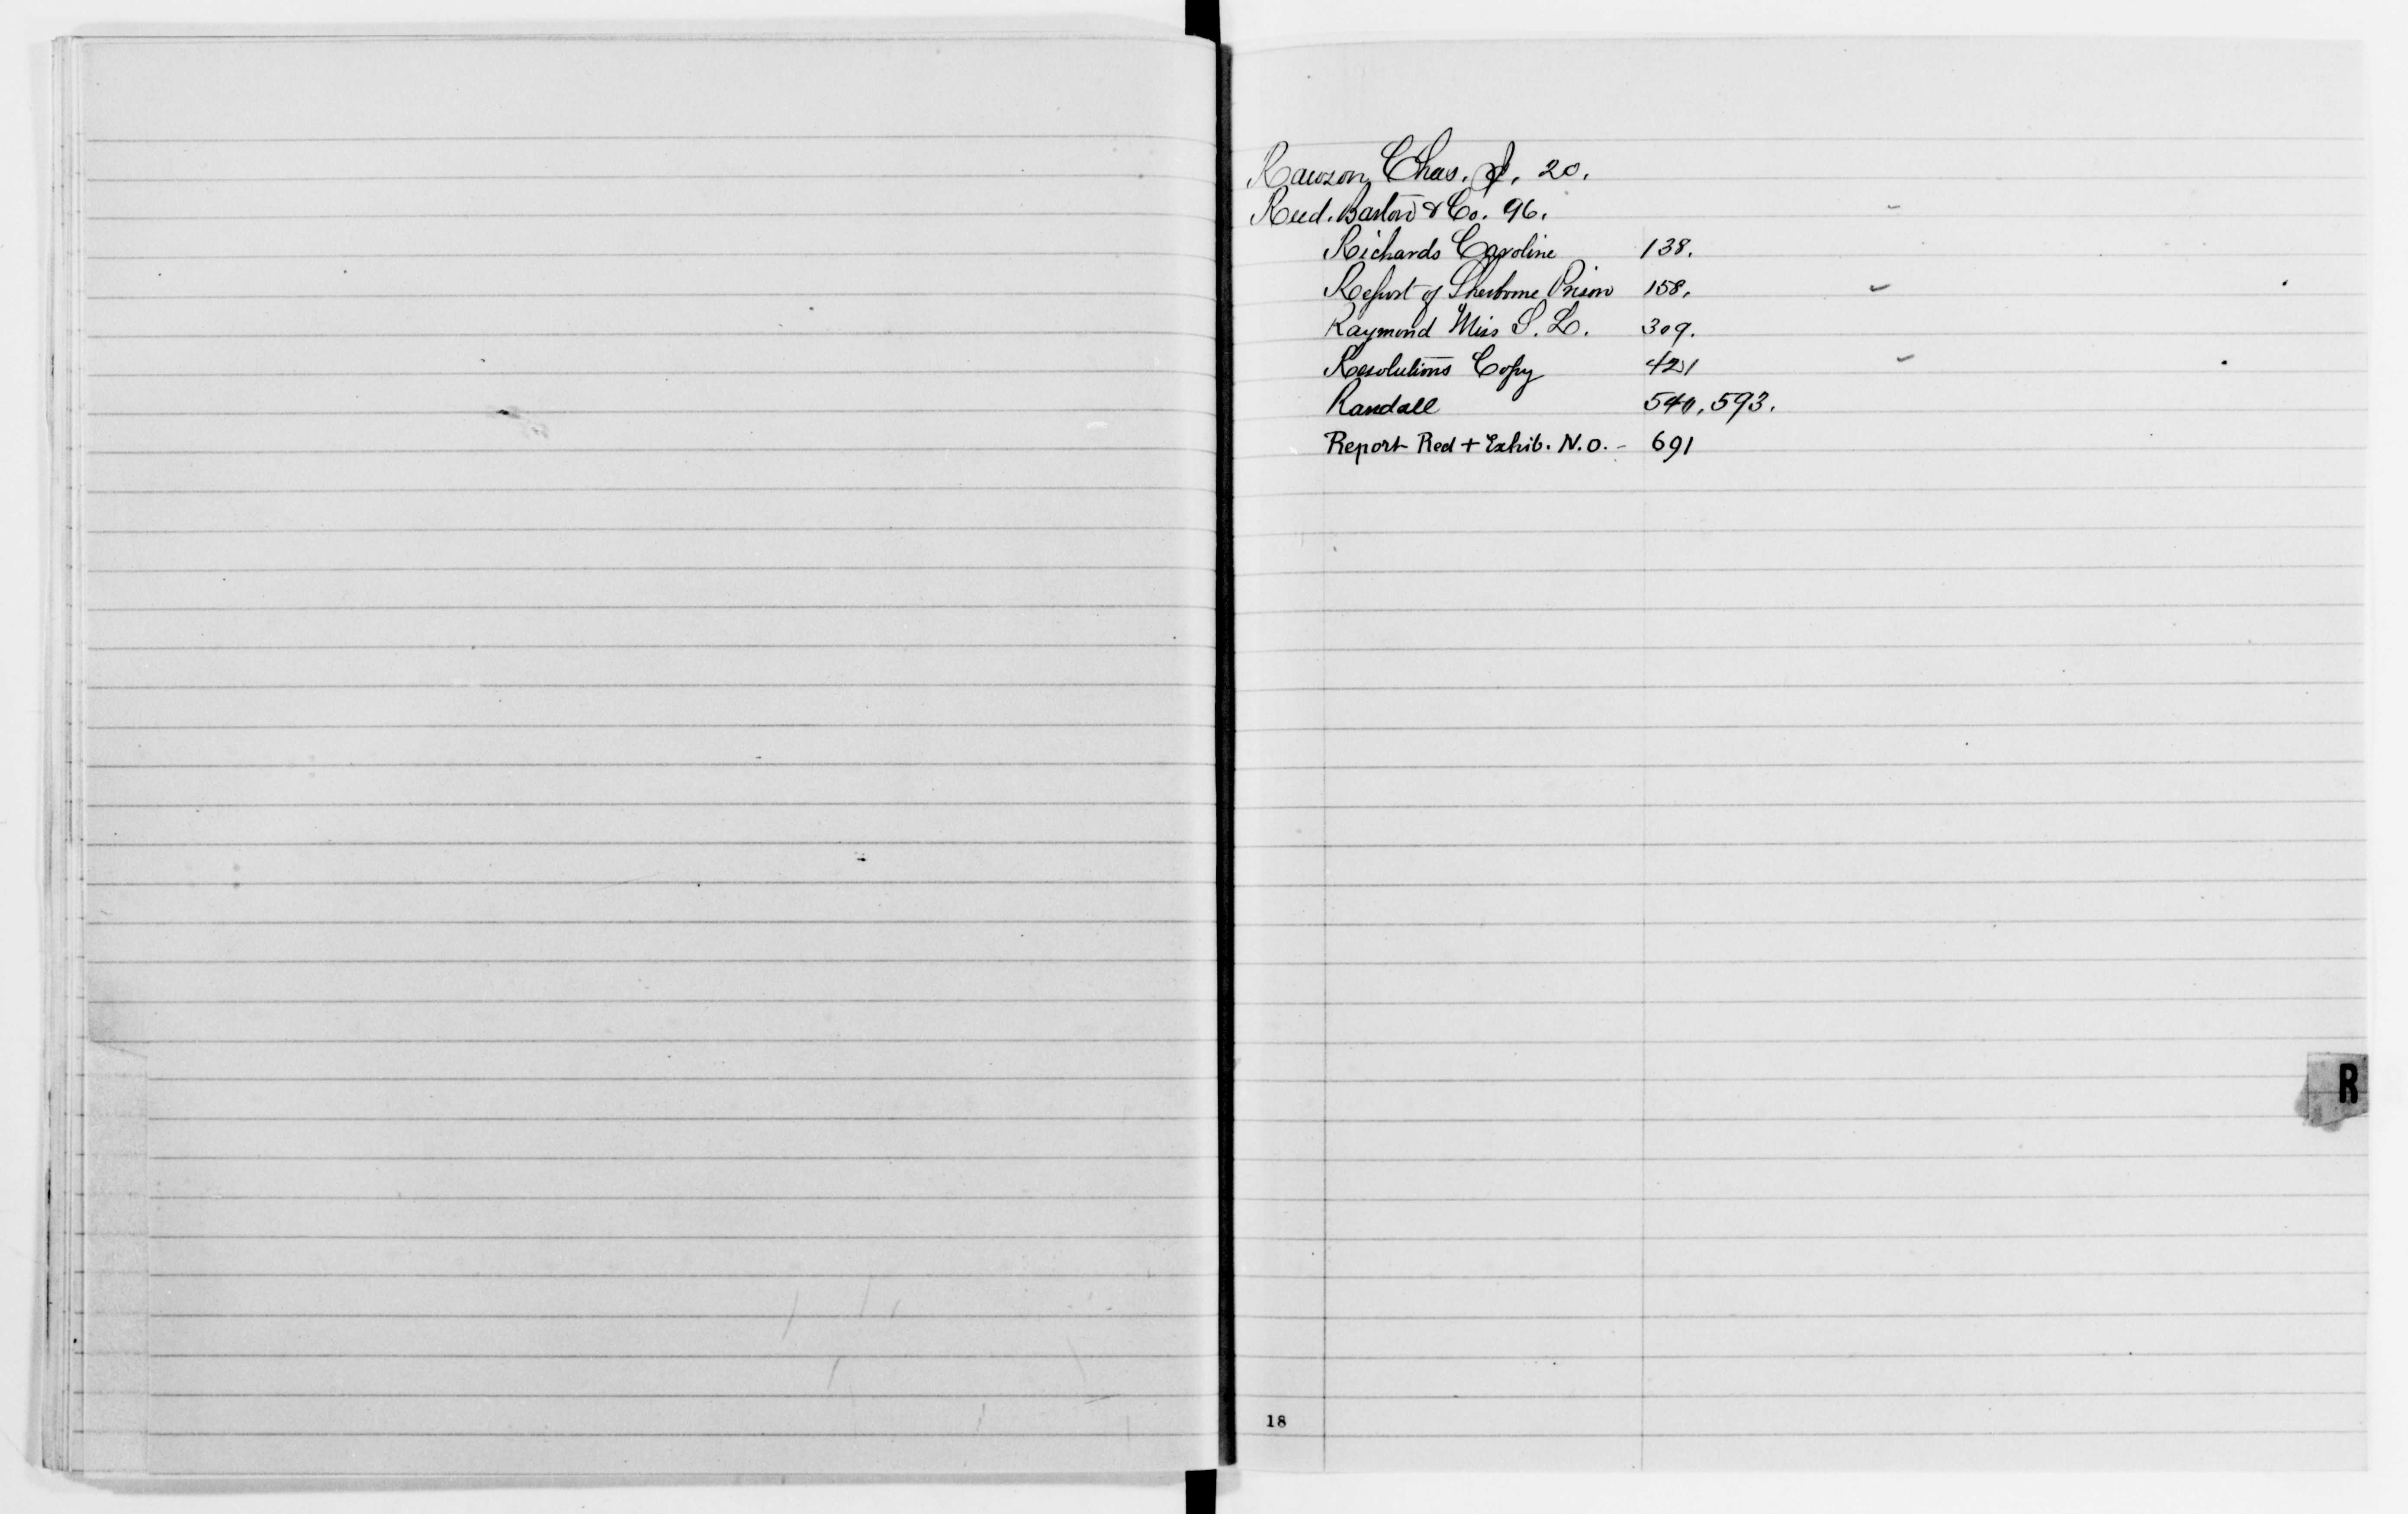 Rawson, Chas. I. 20.
Reed. Barton & Co. 96.
Richards Caroline 138.
Report of Sherborne Prison 158.
Raymond Miss S. L. 309.
Resolutions Copy 421
Randall 540, 593.
Report Red + Exhib. N.O. - 691
R
18